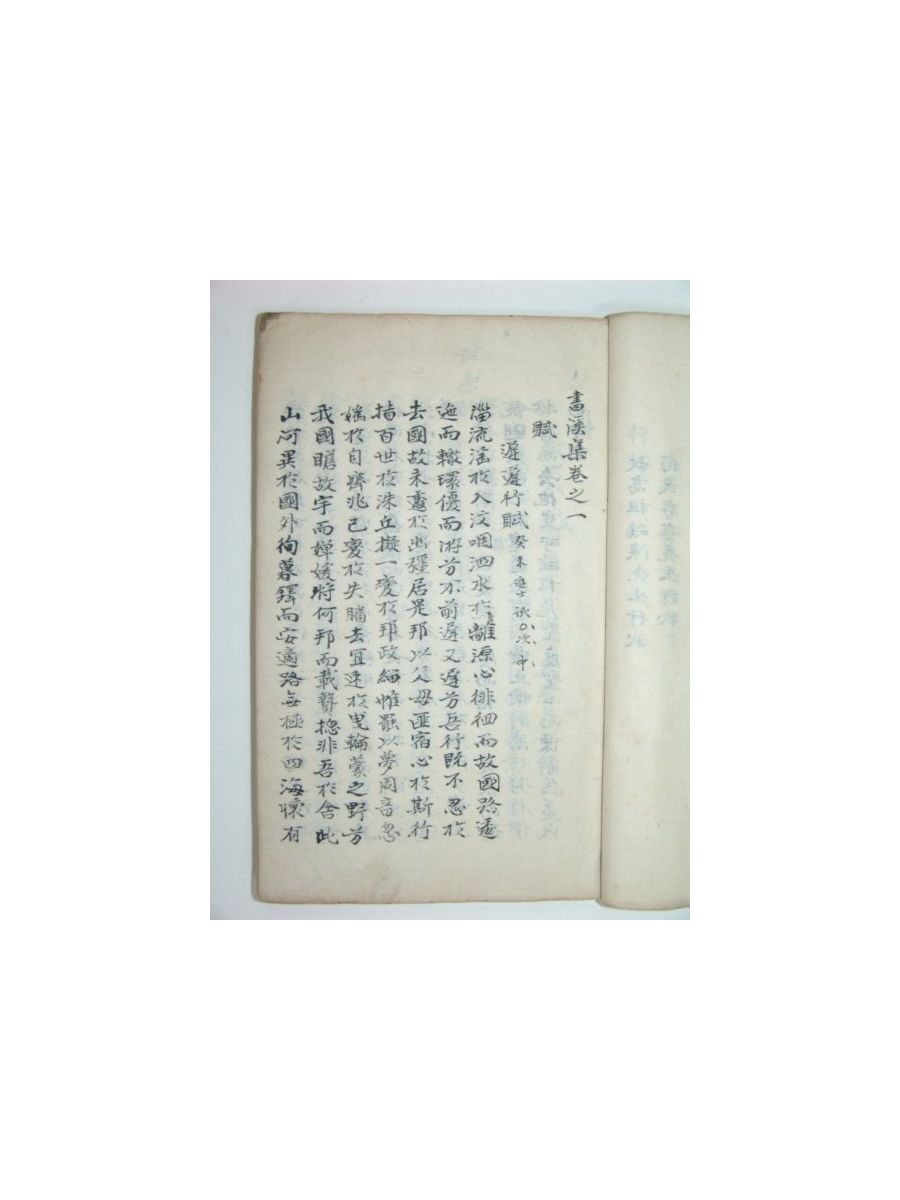 書溪集卷之一
賦
遲遲行賦 癸未 試 次中
淄流滛於入汶咽泗水於離源心徘徊而故國路透
迤而轍環優而游兮不前遲又遲兮吾行旣不忍於
去國故未邁於出疆居是邦以父母匪宿心於斯行
指百世於洙丘擬一變於邦政緇帷罷以夢周音忽
於自齊兆已變於失膰去宜速於曳輪蒙之野兮
我國瞻故宇而嬋媛將何邦而載贄摠非吾於舍此
山河異於國外徇暮鐸而安適路每極於四海懷有